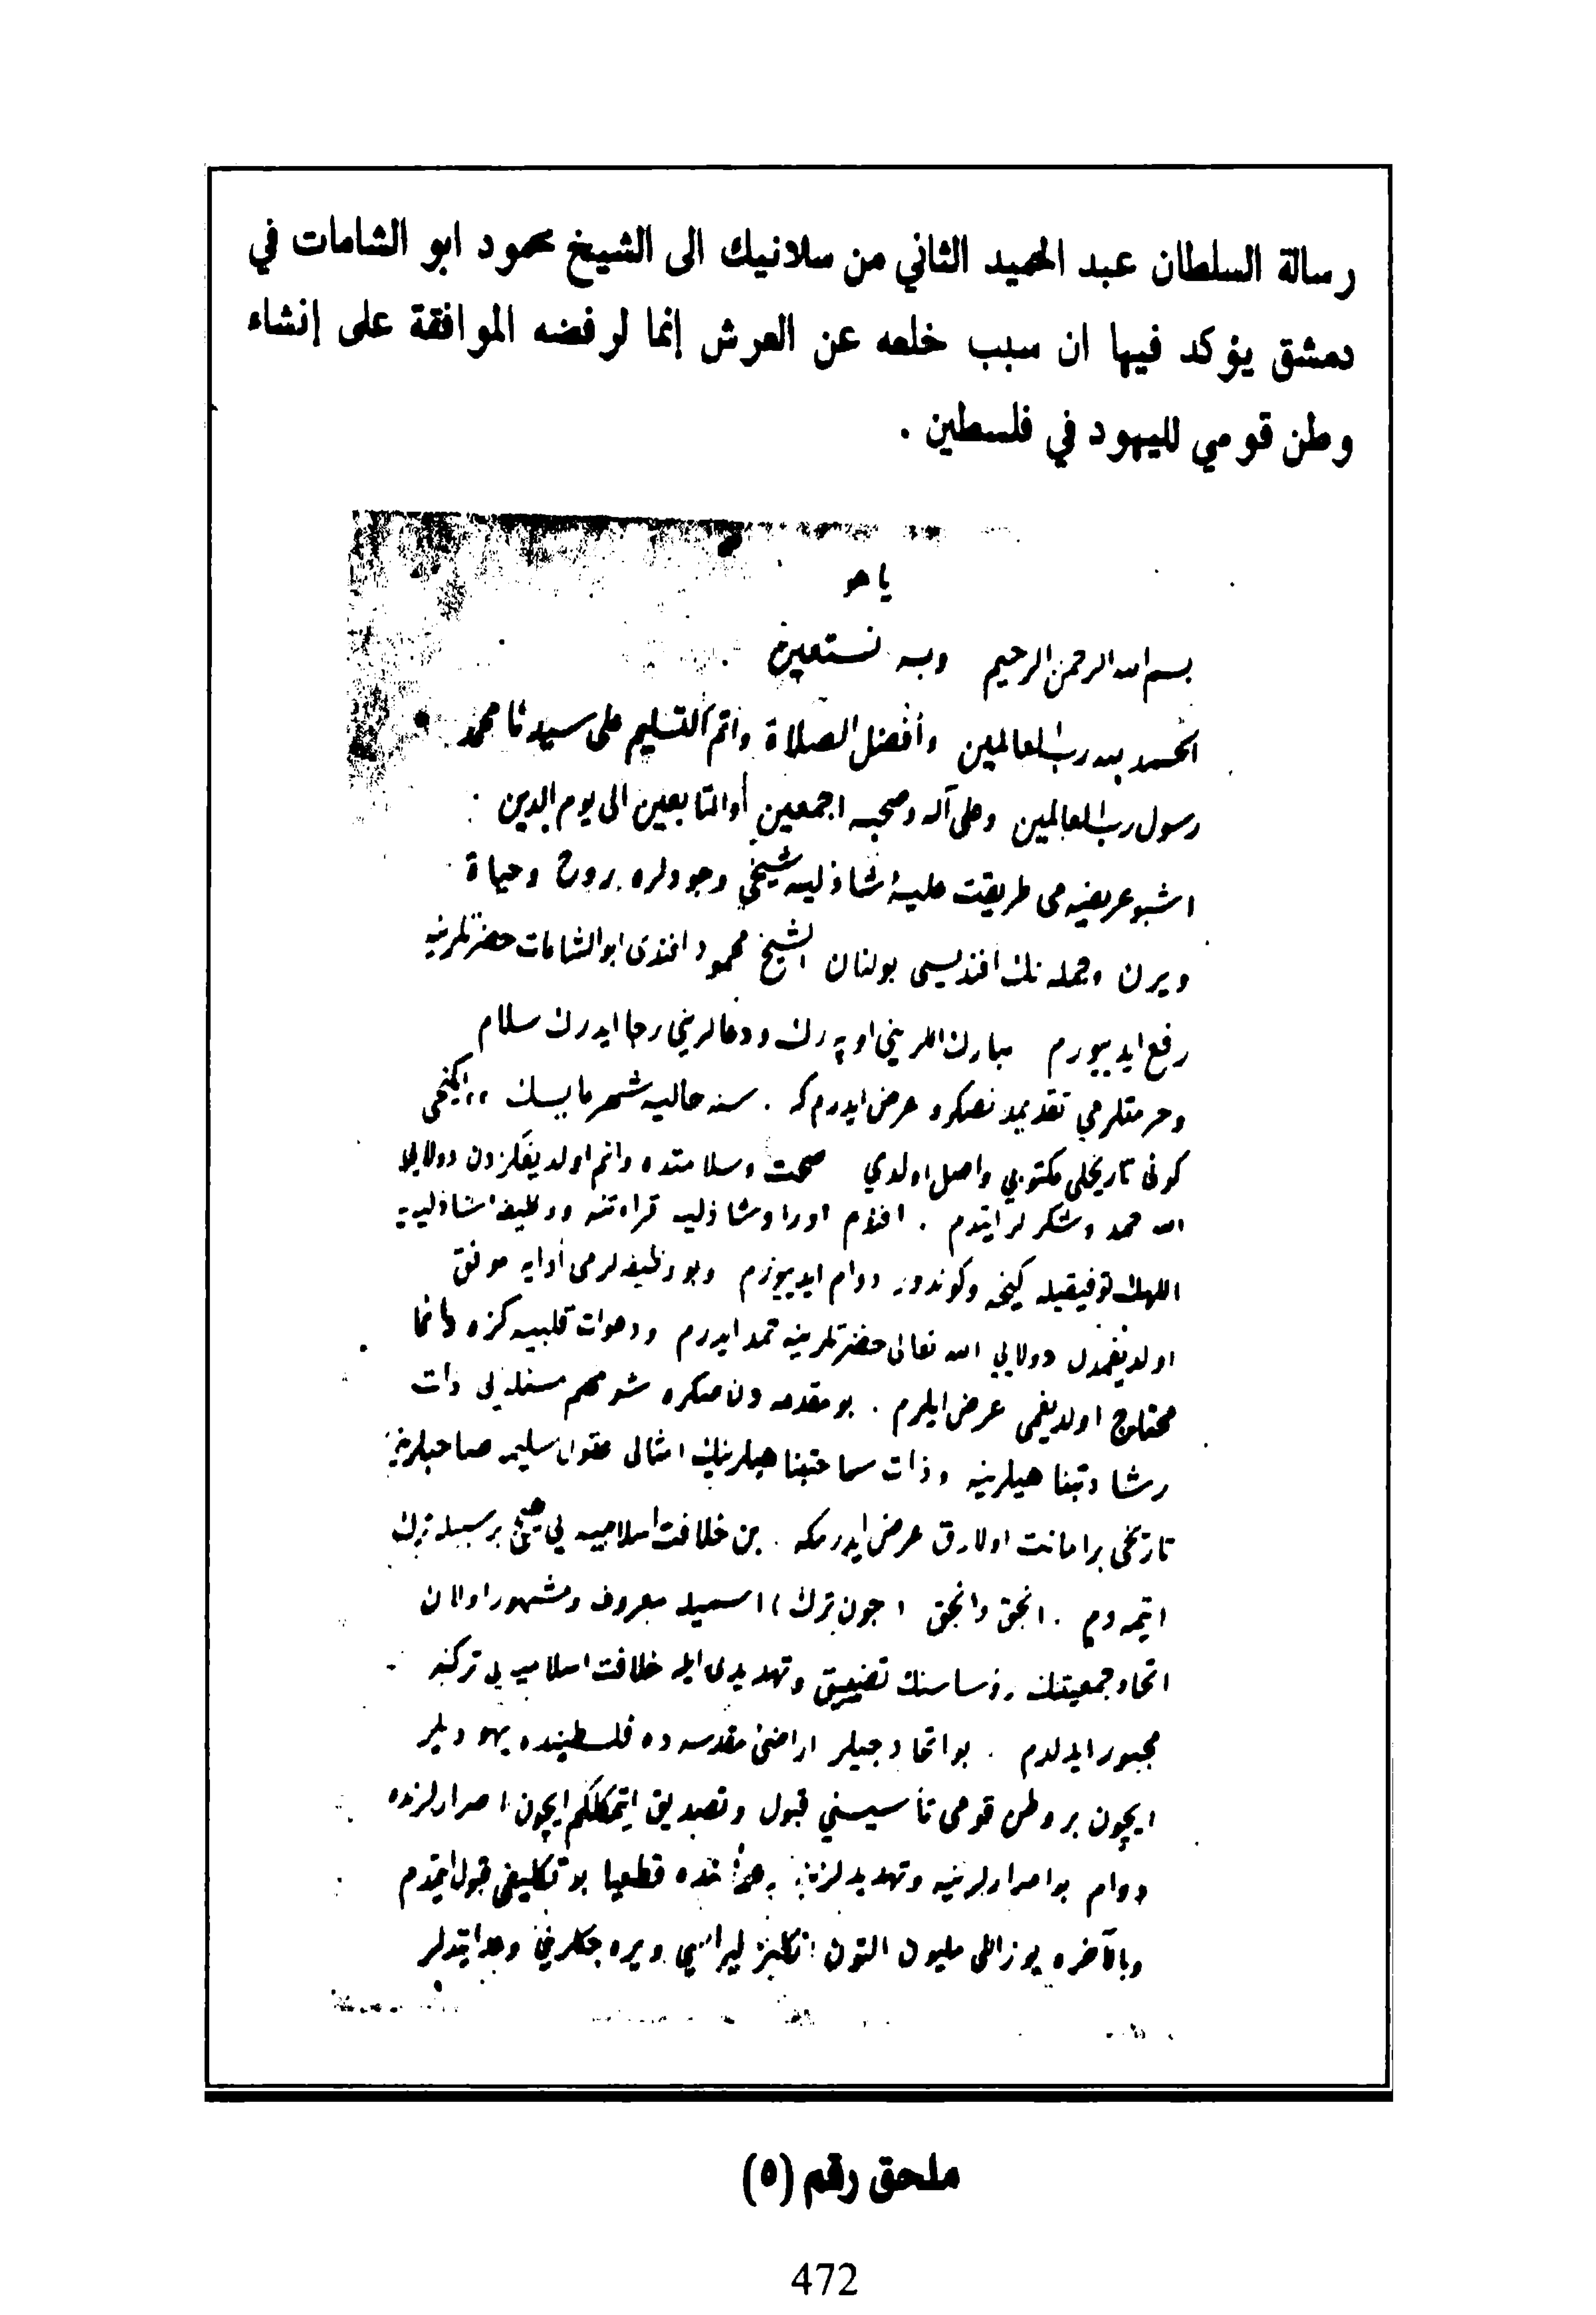 رسالة السلطان عبد الحميد الثاني من سلانيك الى الشيخ محمود ابو الشامات في
دمشق يؤكد فيها ان سبب خلعه عن العرش إنما لرفضه الموافقة على إنشاء
وطن قومي لليهود في فلسطين .
يا هو
بسم الله الرحمن الرحيم وبه نستعين
الحمد لله رب العالمين وأفضل الصلاة وأتم التسليم على سيدنا محمد
رسول رب العالمين وعلى آله وصحبه اجمعين والتابعين الى يوم الدين :
اشبو عريضه مى طريقت عليۀ شاذليه شيخي وجودلره روح وحياة
ويرن وجمله نك افنديسى بولنان الشيخ محمود افندى ابو الشامات حضرتلرينه
رفع ايدييورم مبارك اللريني اوپه رك ودعالريني رجا ايدرك سلام
وحرمتلرمي تقديمدنصكره عرض ايدرم كه . سنه حاليه شهر مايسك ٢٢ ايكنجى
كونى تاريخلى مكتوبي واصل اولدي صحت وسلامتده دائم اولديغكزدن دولايى
الله حمد وشكرلر ايتدم . افندم اوراد شاذليه قراءتنه ووظيفه شاذليه يه
اللهك توفيقيله كيجه وكوندوز دوام ايدييورم وبو وظيفه لرمى أدايه موفق
اولديغمدن دولايي الله تعالى حضرتلرينه حمد ايدرم ودعوات قلبيه كزه دائما
محتاج اولديغمى عرض ايلرم . بو مقدمه دن صكره شو مهم مسئله يى ذات
رشادتپناهيلرينه وذات سماحتپناهيلرينك امثالى عقول سليمه صاحبلرينه
تاريخى بر امانت اولارق عرض ايدرمكه . بن خلافت اسلاميه يى هيچ بر سببله ترك
ايتمه دم . انجق وانجق ( جون ترك ) اسميله معروف ومشهور اولان
اتحاد جمعيتنك رؤساسنك تضييق وتهديدى ايله خلافت اسلاميه يى تركه
مجبور ايدلدم . بو اتحادجيلر اراضئ مقدسه ده فلسطينده يهوديلر
ايچون بر وطن قومى تأسيسني قبول وتصديق ايتمكلكم ايچون اصرارلرنده
دوام بو اصرارلرينه وتهديدلرينه رغما بنده قطعيا بو تكليفى قبول ايتمدم
وبالآخره يوز اللى مليون التون انكليز ليراسي ويره جكلريني وعد ايتديلر
ملحق رقم (٥)
472